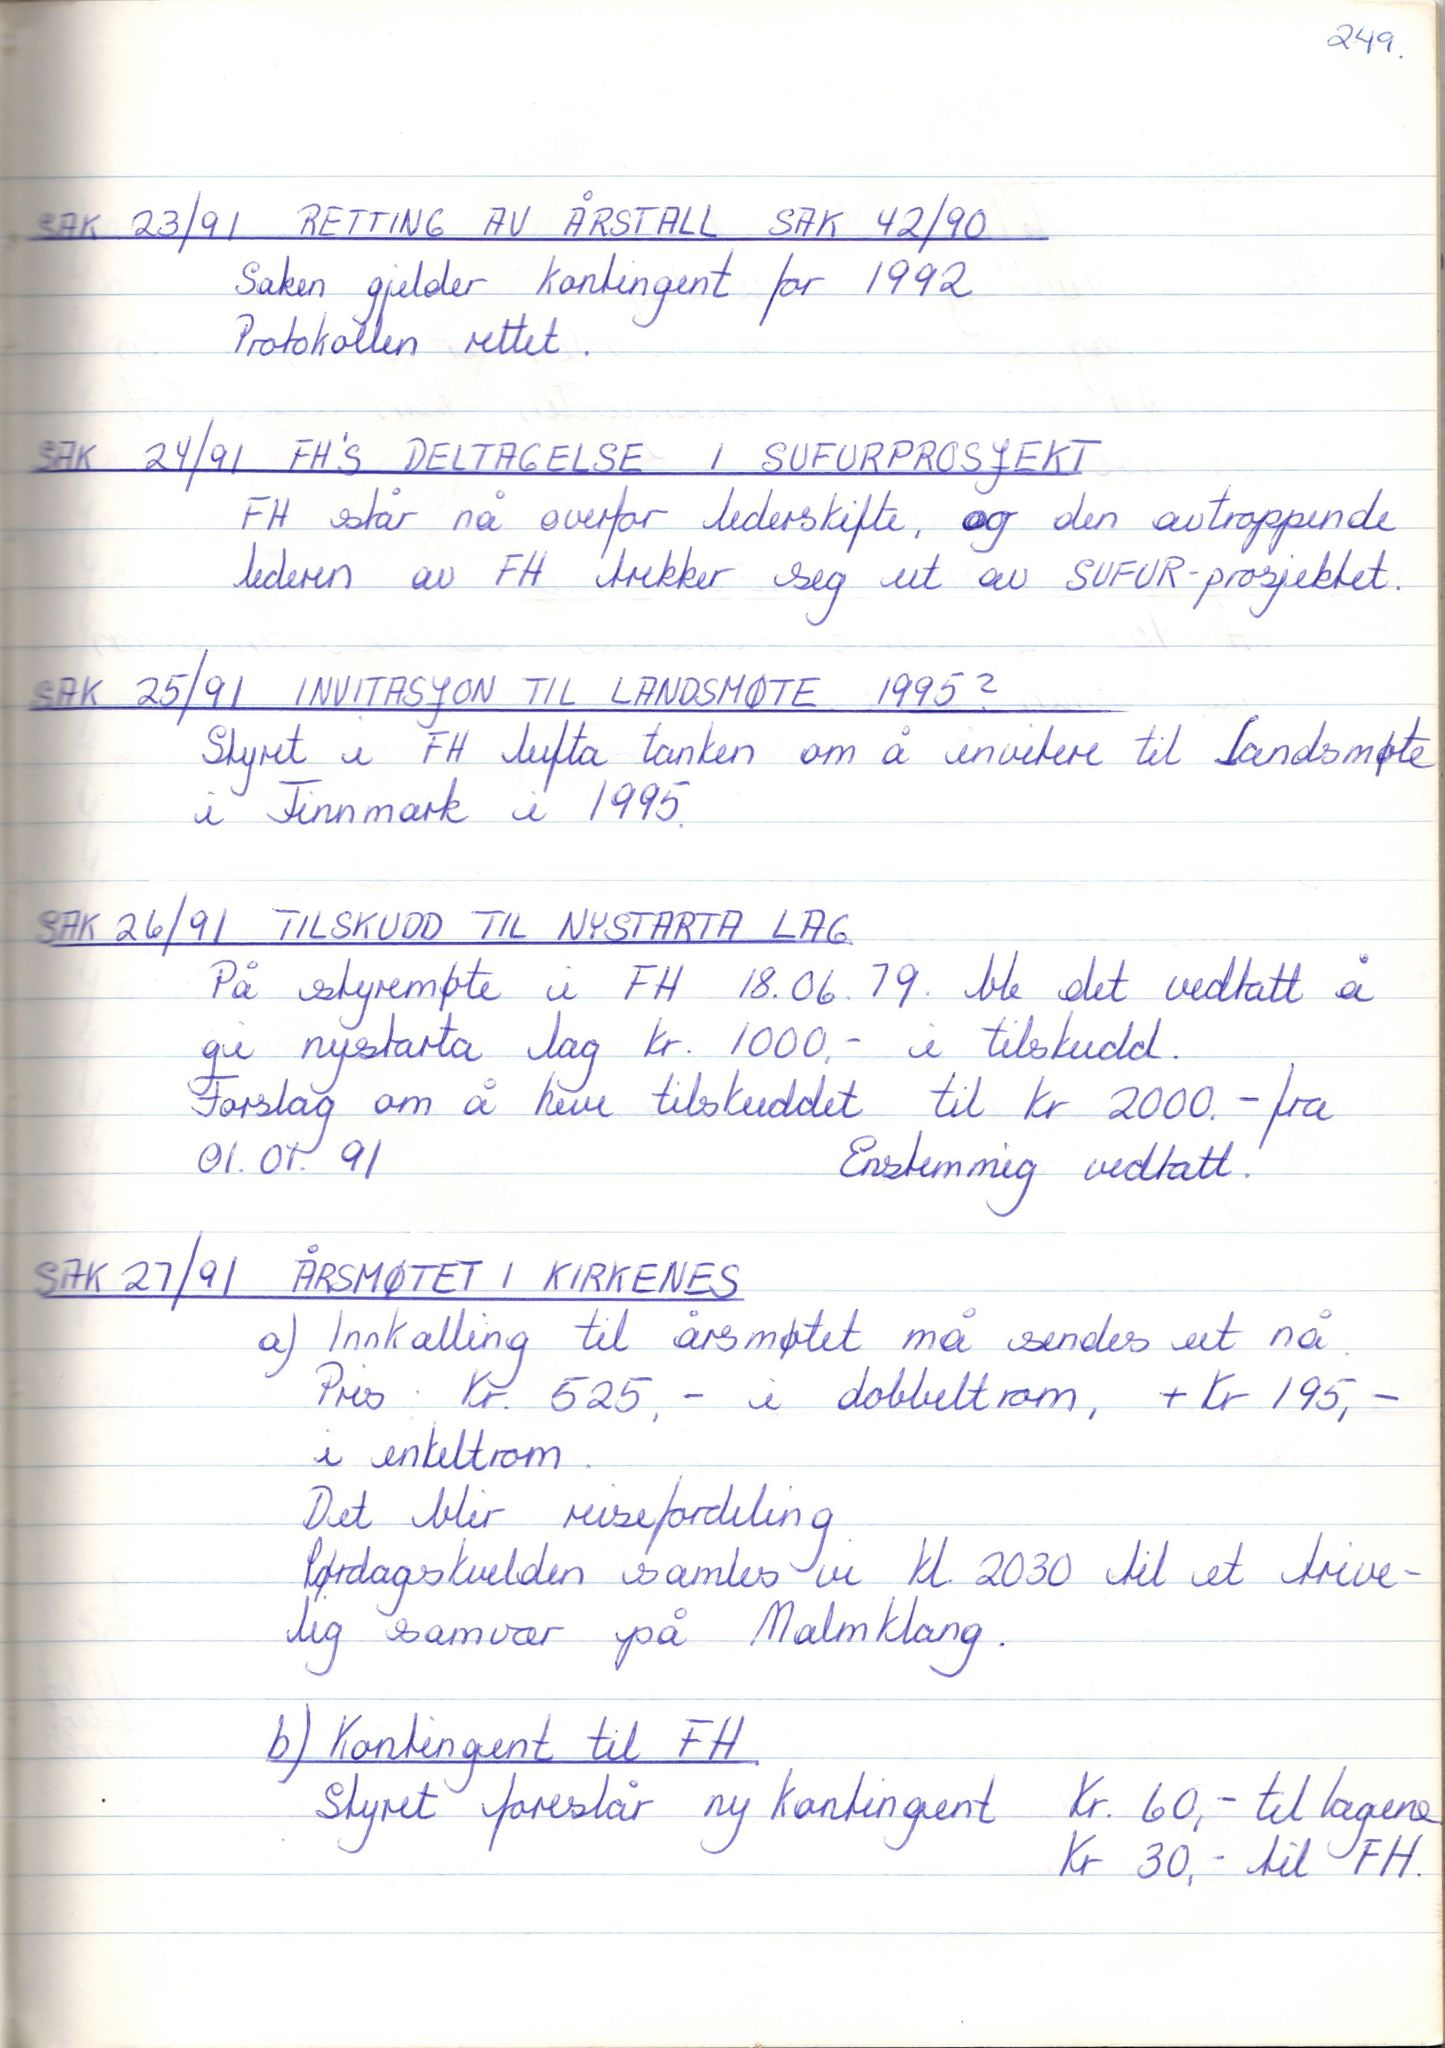 249.
SAK 23/91 RETTING AV ÅRSTALL SAK 42/90
Saken gjelder kontingent for 1992
Protokollen rettet.
SAK 24/91 FH'S DELTAGELSE I SUFURPROSJEKT
FH står nå overfor lederskifte, og den avtroppende
lederen av FH trekker seg ut av SUFUR-prosjektet.
SAK 25/91 INVITASJON TIL LANDSMØTE 1995?
Styret i FH lufta tanken om å invitere til Landsmøte
i Finnmark i 1995.
SAK 26/91 TILSKUDD TIL NYSTARTA LAG
På styremøte i FH 18.06.79. ble det vedtatt å
gi nystarta lag kr. 1000,- i tilskudd.
Forslag om å heve tilskuddet til kr 2000.- fra
01.01.91 Enstemmig vedtatt.
SAK 27/91 ÅRSMØTET I KIRKENES
a) Innkalling til årsmøtet må sendes ut nå.
Pris: Kr. 525,- i dobbeltrom, + Kr 195,-
i enkeltrom.
Det blir reisefordeling
Lørdagskvelden samles vi kl. 2030 til et trive-
lig samvær på Malmklang.
b) Kontingent til FH
Styret foreslår ny kontingent Kr. 60,- til lagene
Kr 30,- til FH.